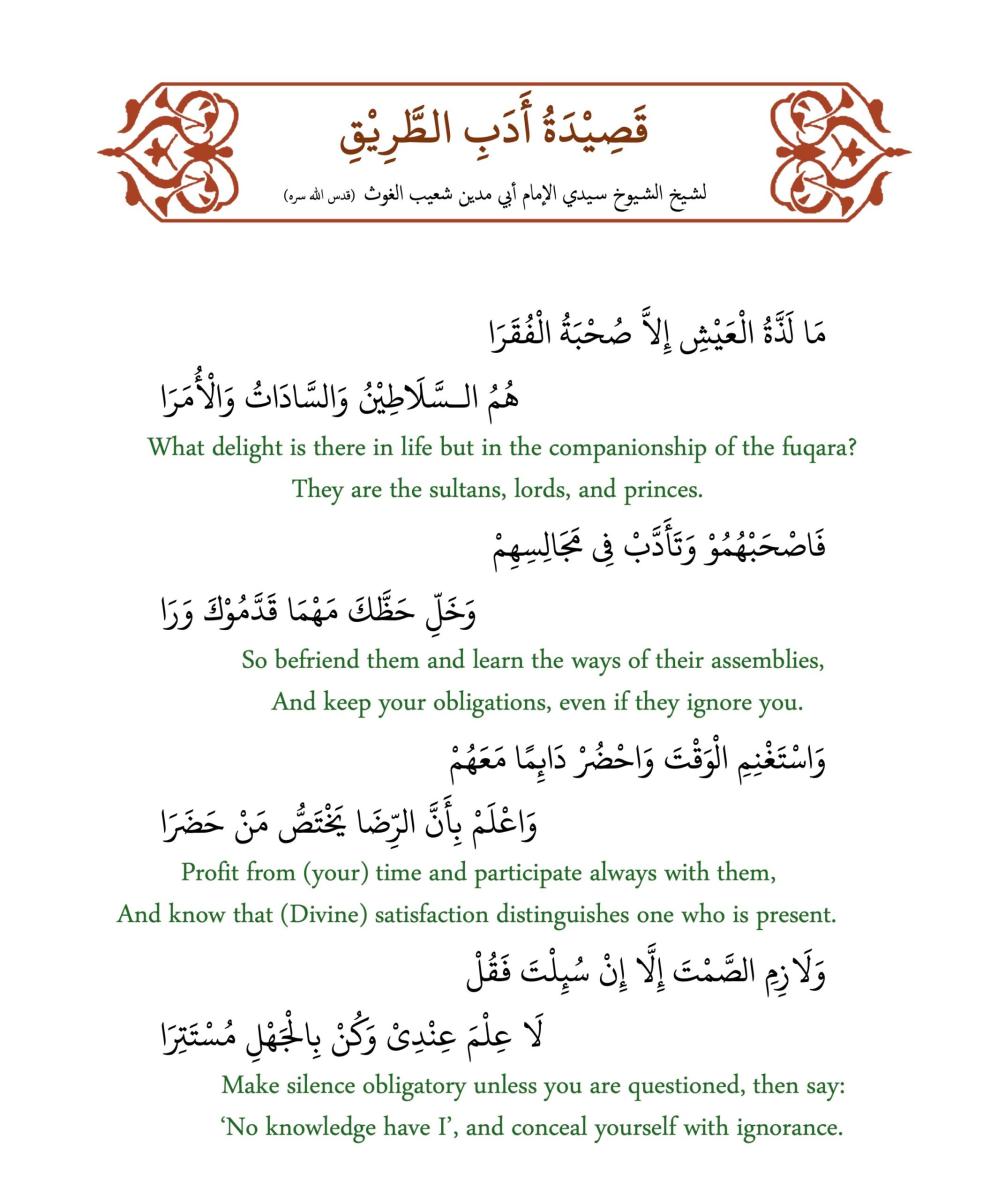 قَصِيْدَةُ أَدَبِ الطَّرِيْقِ
لشيخ الشيوخ سيدي الإمام أبي مدين شعيب الغوث (قدس الله سره)
مَا لَذَّةُ الْعَيْشِ إِلاَّ صُحْبَةُ الْفُقَرَا
هُمُ الـسَّلَاطِيْنُ وَالسَّادَاتُ وَالْأُمَرَا
What delight is there in life but in the companionship of the fuqara?
They are the sultans, lords, and princes.
فَاصْحَبْهُمُوْ وَتَأَدَّبْ فِى مَجَالِسِهِمْ
وَخَلِّ حَظَّكَ مَهْمَا قَدَّمُوْكَ وَرَا
So befriend them and learn the ways of their assemblies,
And keep your obligations, even if they ignore you.
وَاسْتَغْنِمِ الْوَقْتَ وَاحْضُرْ دَائِمًا مَعَهُمْ
وَاعْلَمْ بِأَنَّ الرِّضَا يَخْتَصُّ مَنْ حَضَرَا
Profit from (your) time and participate always with them,
And know that (Divine) satisfaction distinguishes one who is present.
وَلَازِمِ الصَّمْتَ إِلَّا إِنْ سُئِلْتَ فَقُلْ
لَا عِلْمَ عِنْدِىْ وَكُنْ بِالْجَهْلِ مُسْتَتِرَا
Make silence obligatory unless you are questioned, then say:
‘No knowledge have I’, and conceal yourself with ignorance.